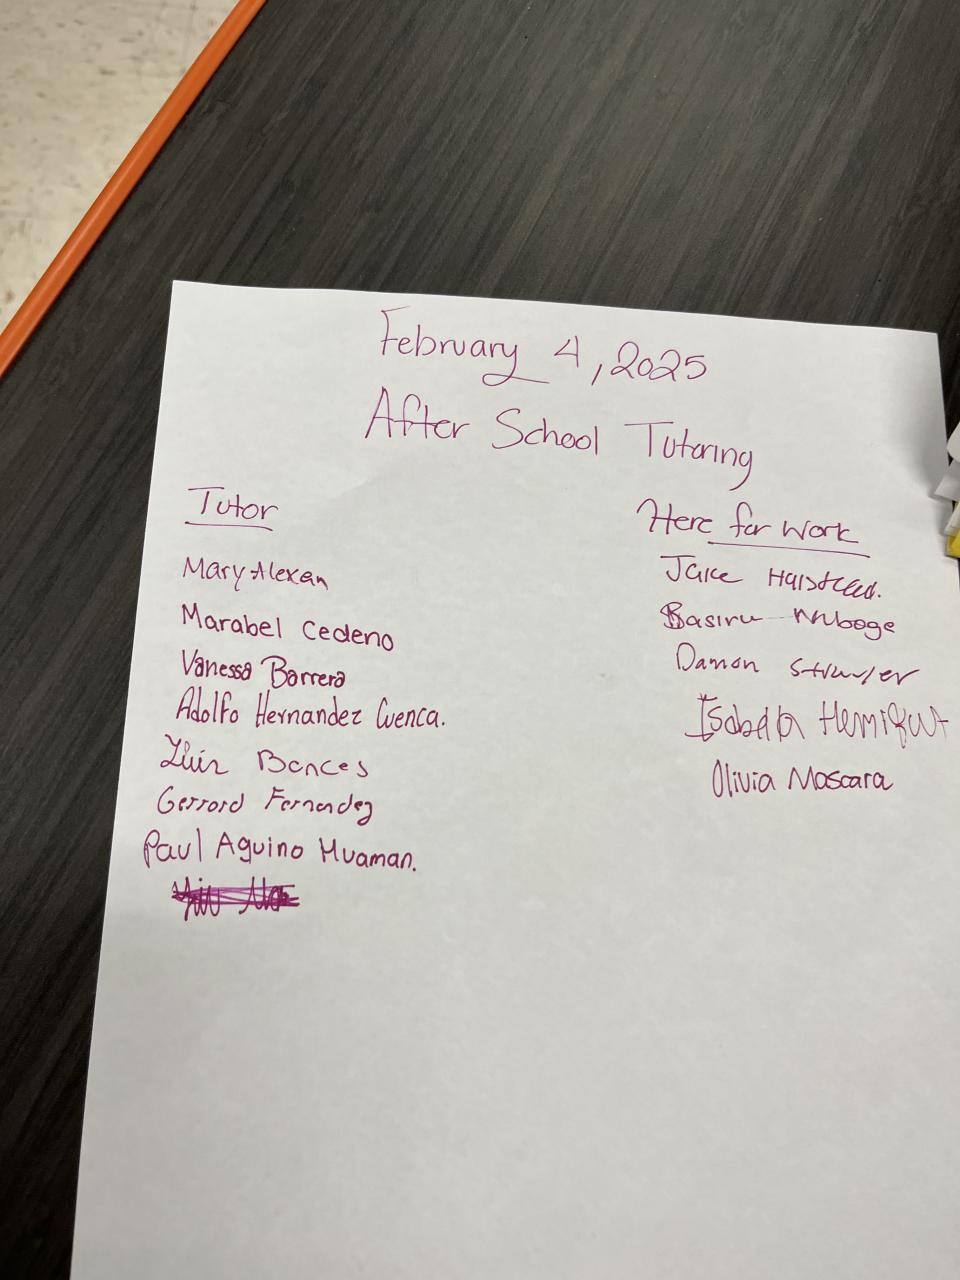 February 4, 2025
After School Tutoring
Tutor
Mary Alexan
Marabel Cedeno
Vanessa Barrera
Adolfo Hernandez Cuenca.
Bances
Gerrard Fernandez
Paul Aquino Huaman.
Here for work
Jake Halstead.
Basiru Mboge
Damon
Isabella
Olivia Mascara